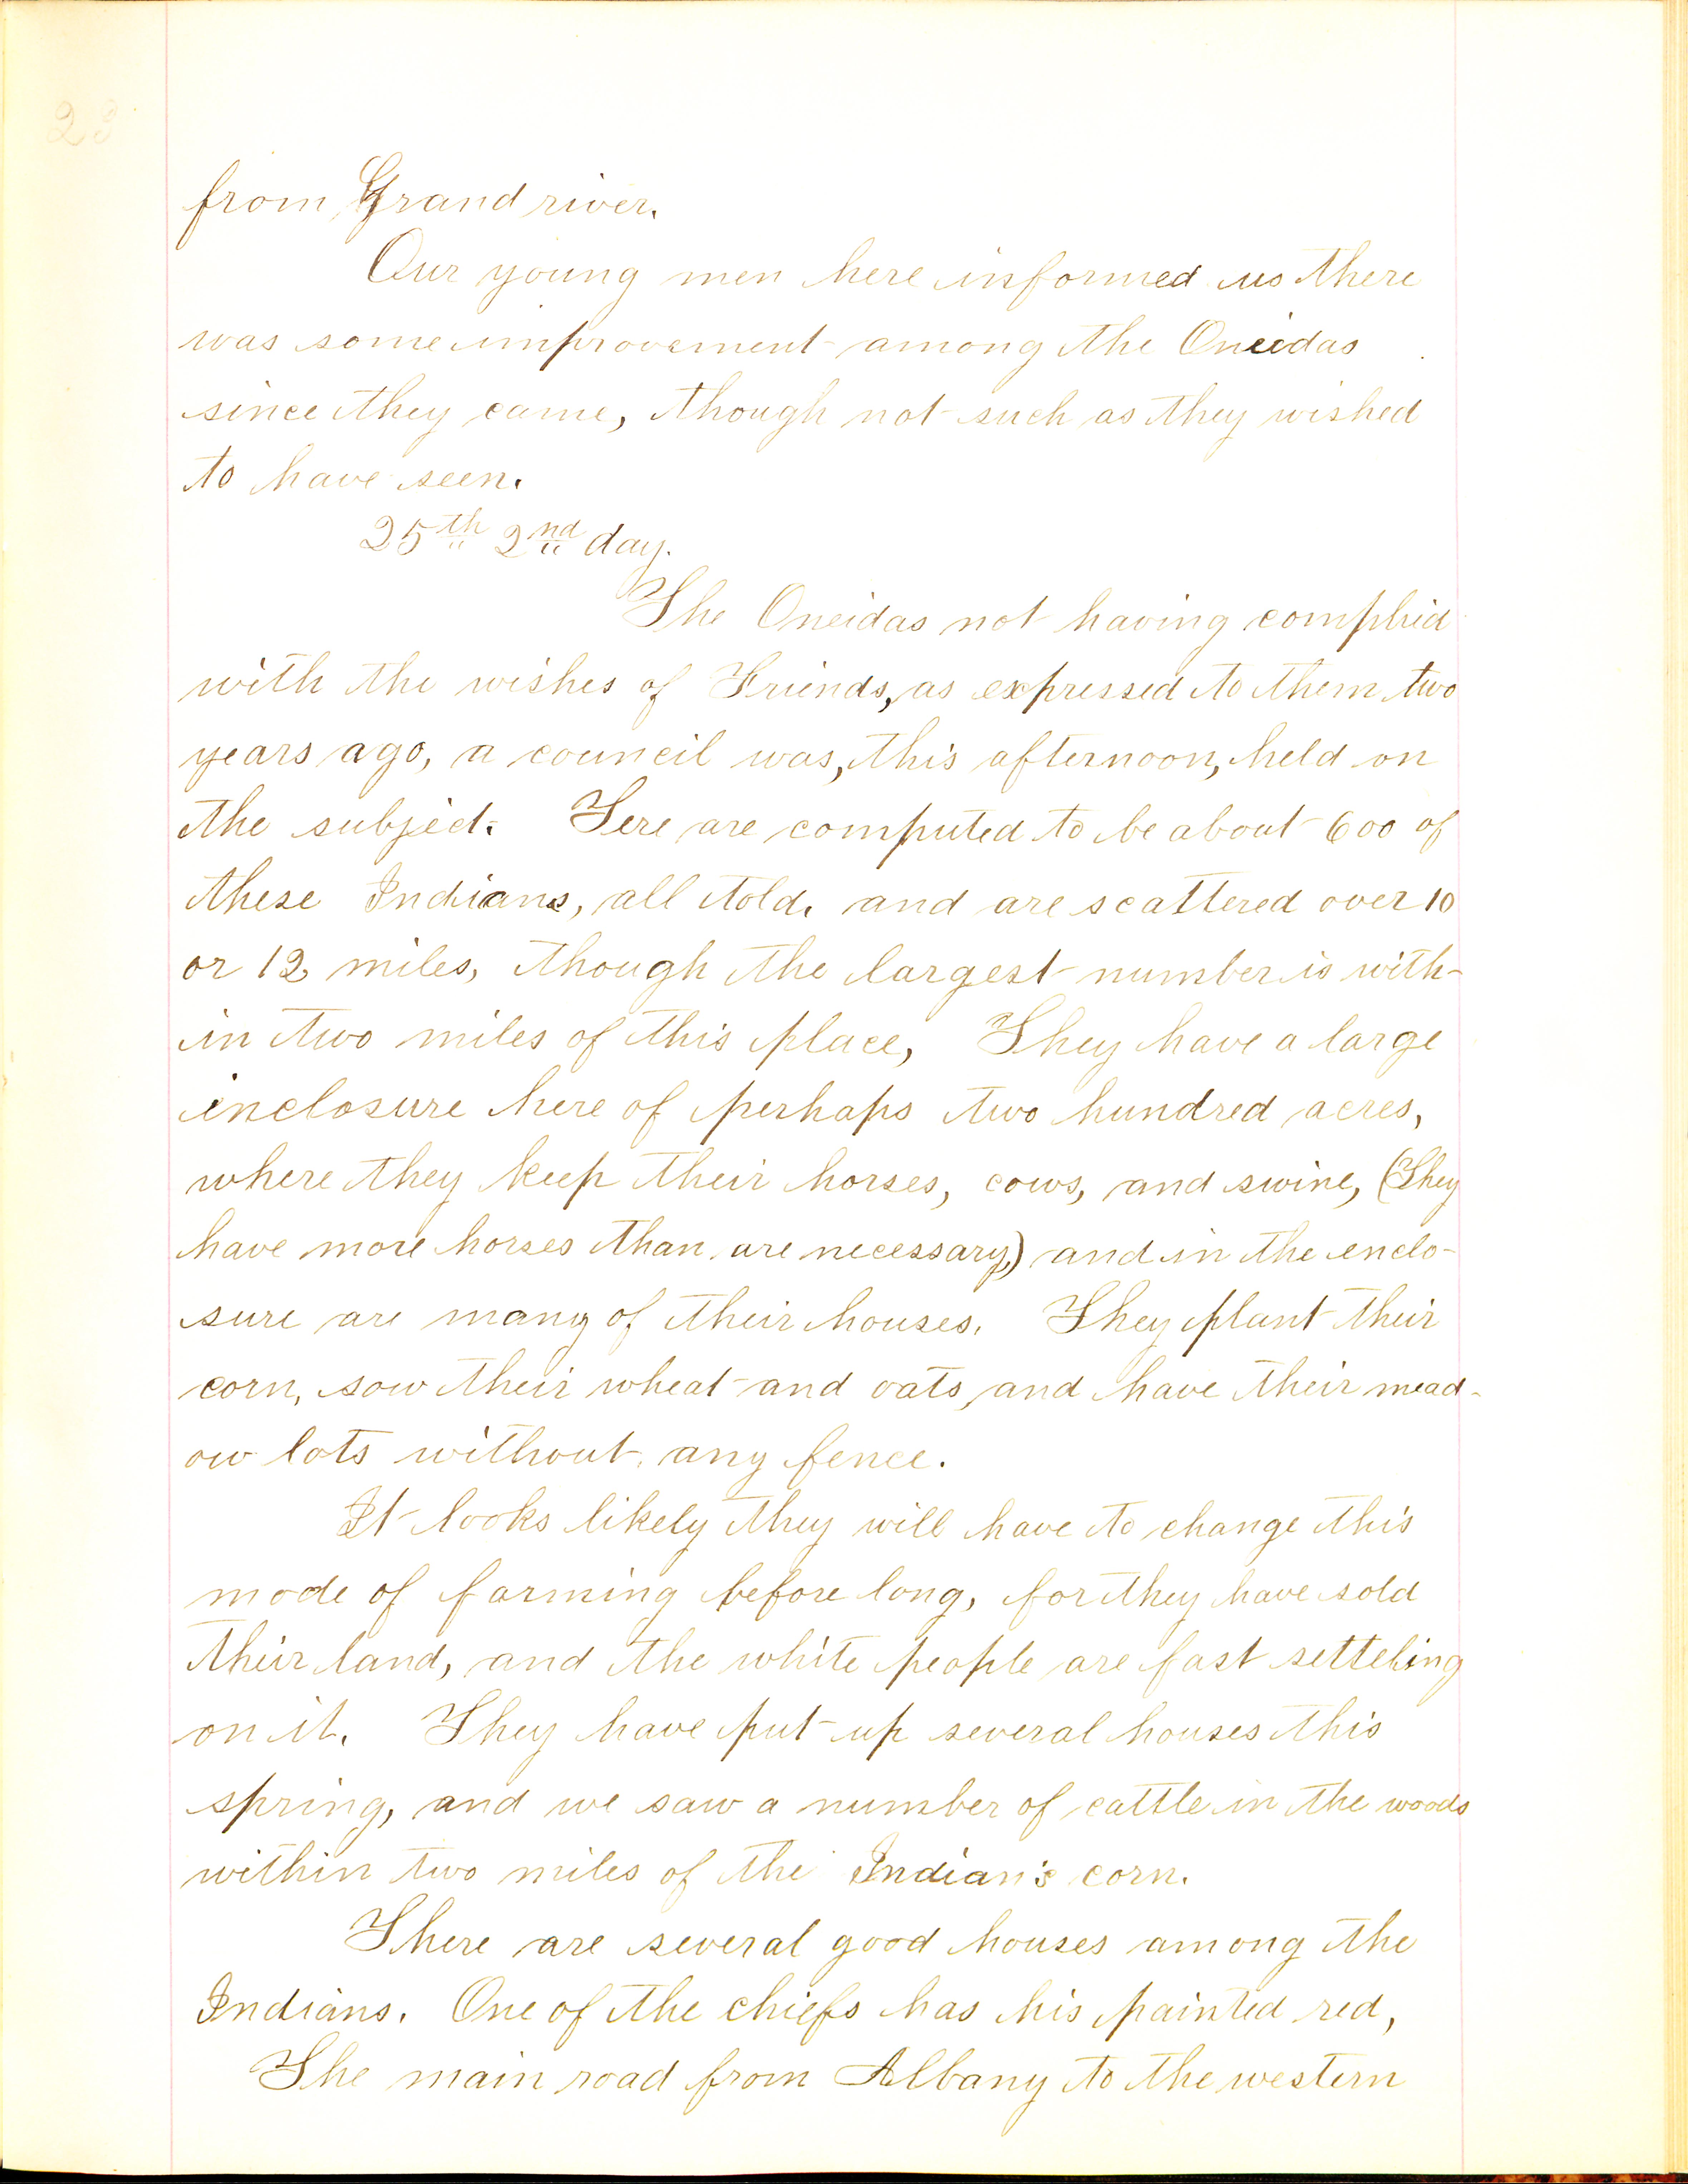 23
from Grand river.
Our young men here informed us there
was some improvement among the Oneidas
since they came, though not such as they wished
to have seen.
25th 2nd day.
The Oneidas not having complied
with the wishes of Friends, as expressed to them two
years ago, a council was, this afternoon, held on
the subject. Here are computed to be about 600 of
these Indians, all told. and are scattered over 10
or 12 miles, though the largest number is with-
in two miles of this place, They have a large
inclosure here of perhaps two hundred acres,
where they keep their horses, cows, and swine, (They
have more horses than are necessary,) and in the enclo-
sure are many of their houses. They plant their
corn, sow their wheat and oats, and have their mead-
ow lots without any fence.
It looks likely they will have to change this
mode of farming before long, for they have sold
their land, and the white people are fast setteling
on it. They have put up several houses this
spring, and we saw a number of cattle in the woods
within two miles of the Indian's corn.
There are several good houses among the
Indians. One of the chiefs has his painted red,
The main road from Albany to the western